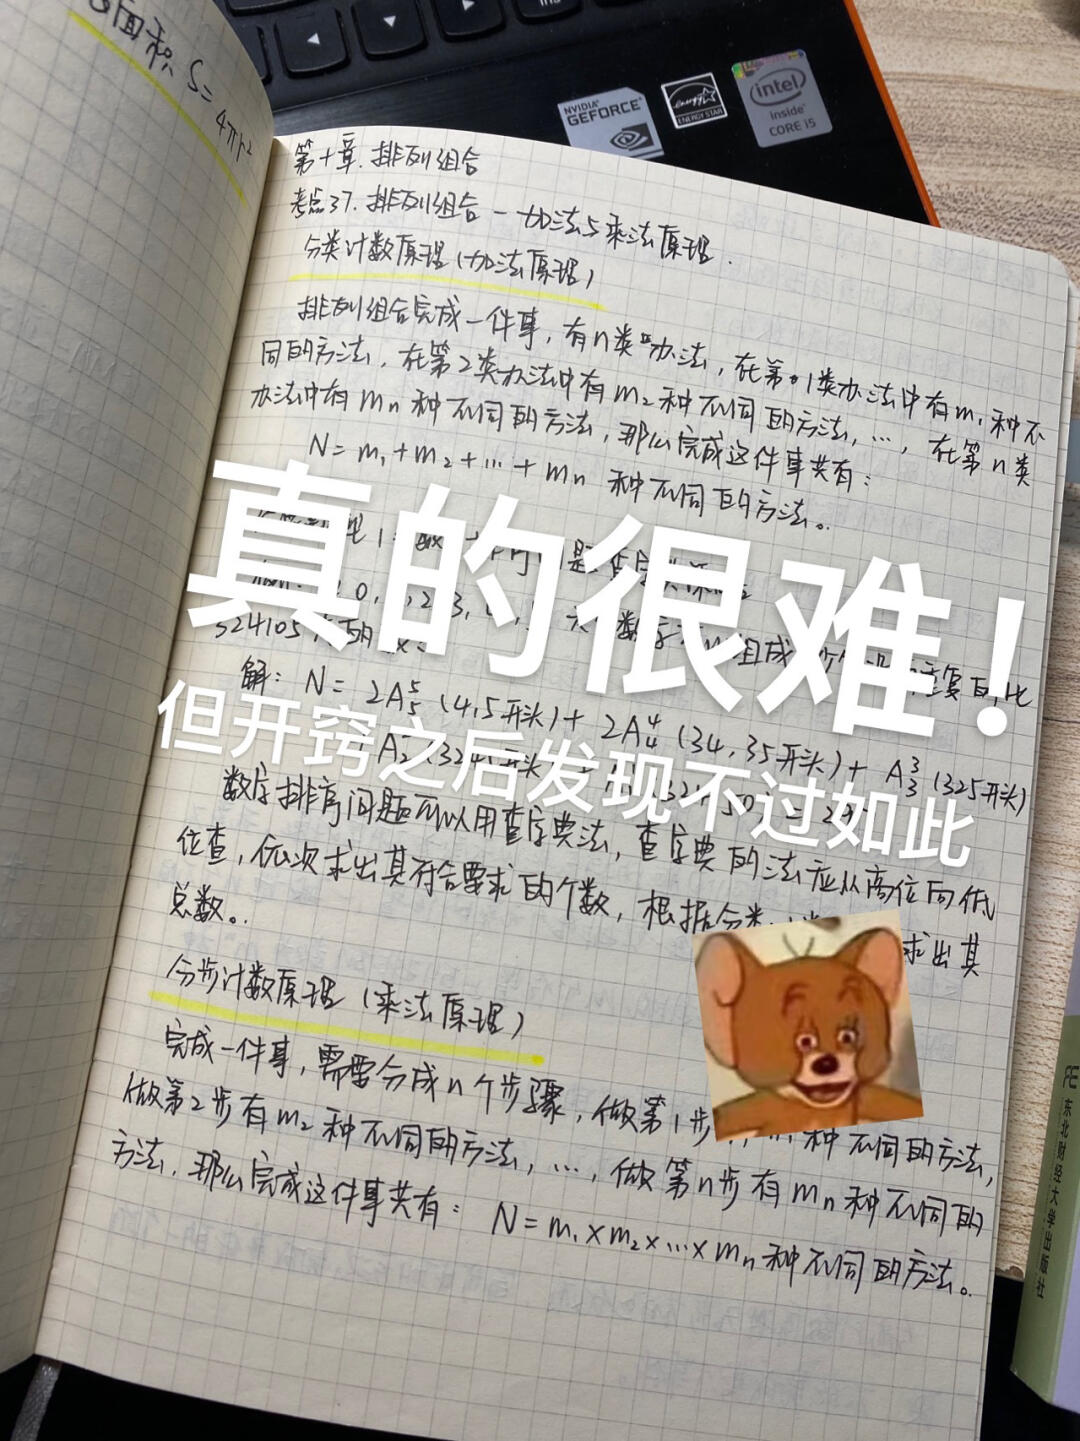 面积 S=4πr²
NVIDIA
GEFORCE
energy
ENERGY STAR
intel
inside
CORE i5
第十章. 排列组合
考点37. 排列组合 - 加法与乘法原理.
分类计数原理 (加法原理)
排列组合完成一件事, 有n类办法, 在第1类办法中有m₁种不
同的方法, 在第2类办法中有m₂种不同的方法, …, 在第n类
办法中有mₙ种不同的方法, 那么完成这件事共有:
N = m₁ + m₂ + … + mₙ 种不同的方法。
真的很难!
324105
解: N = 2A⁵₅ (4,5开头) + 2A⁴₄ (34, 35开头) + A³₃ (325开头)
但开窍之后发现不过如此
数字排序问题可以用查字典法, 查字典的法应从高位向低
位查, 依次求出其符合要求的个数, 根据分类 求出其
总数。
分步计数原理 (乘法原理)
完成一件事, 需要分成n个步骤, 做第1步 种不同的方法,
做第2步有m₂种不同的方法, …, 做第n步有mₙ种不同的
方法, 那么完成这件事共有: N = m₁×m₂×…×mₙ种不同的方法。
东北财经大学出版社